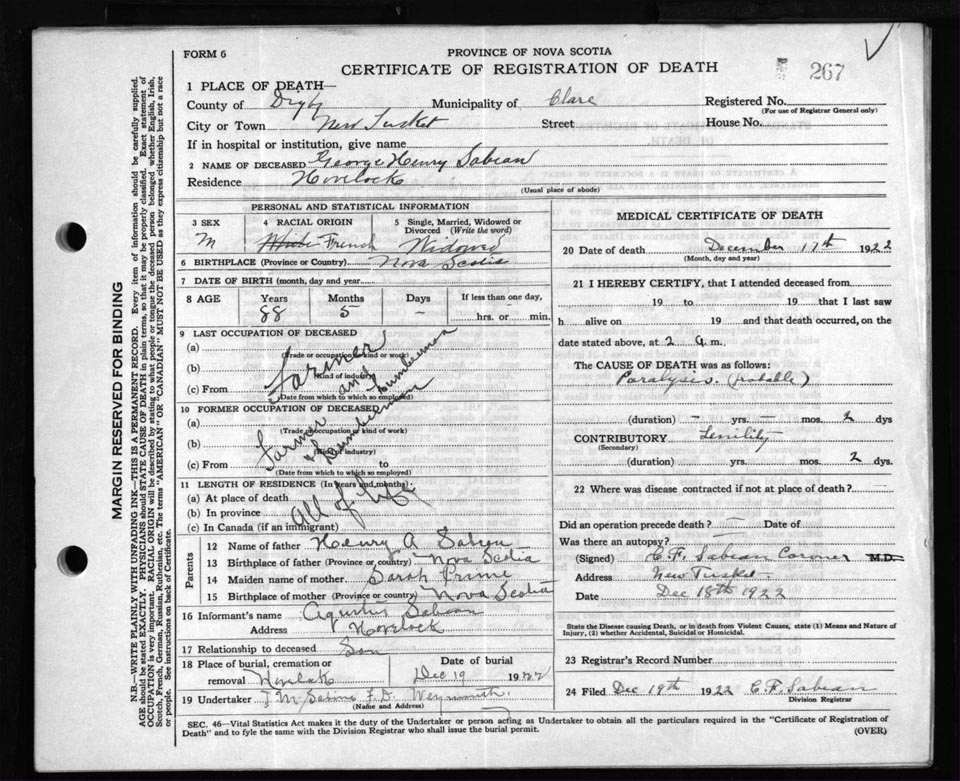 FORM 6
PROVINCE OF NOVA SCOTIA
CERTIFICATE OF REGISTRATION OF DEATH
267
1 PLACE OF DEATH—
County of Digby Municipality of Clare Registered No.
(For use of Registrar General only)
City or Town New Tusket Street House No.
If in hospital or institution, give name
2 NAME OF DECEASED George Henry Sabean
Residence Havelock
(Usual place of abode)
PERSONAL AND STATISTICAL INFORMATION
3 SEX 4 RACIAL ORIGIN 5 Single, Married, Widowed or Divorced (Write the word)
M White French Widowed
6 BIRTHPLACE (Province or Country) Nova Scotia
7 DATE OF BIRTH (month, day and year)
8 AGE Years Months Days If less than one day,
88 5 – hrs. or min.
9 LAST OCCUPATION OF DECEASED
(a)
(Trade or occupation or kind or work)
(b)
(Kind of industry)
(c) From
(Date from which to which so employed)
Farmer and Lumberman
10 FORMER OCCUPATION OF DECEASED
(a)
(Trade or occupation or kind of work)
(b)
(Kind of industry)
(c) From to
(Date from which to which so employed)
Farmer & Lumberman
11 LENGTH OF RESIDENCE (In years and months):
(a) At place of death
(b) In province
(c) In Canada (if an immigrant)
All of life
Parents
12 Name of father Henry A
13 Birthplace of father (Province or country) Nova Scotia
14 Maiden name of mother Sarah Prime
15 Birthplace of mother (Province or country) Nova Scotia
16 Informant's name Sabean
Address Havelock
17 Relationship to deceased Son
18 Place of burial, cremation or removal Havelock Date of burial Dec 19 1922
19 Undertaker J M F.D. Weymouth
(Name and Address)
MEDICAL CERTIFICATE OF DEATH
20 Date of death December 17th 1922
(Month, day and year)
21 I HEREBY CERTIFY, that I attended deceased from
19 to 19 that I last saw
h alive on 19 and that death occurred, on the
date stated above, at 2 a.m.
The CAUSE OF DEATH was as follows:
Paralysis. (Probable)
(duration) – yrs. – mos. 2 dys
CONTRIBUTORY Senility
(Secondary)
(duration) yrs. mos. 2 dys.
22 Where was disease contracted if not at place of death? —
Did an operation precede death? — Date of
Was there an autopsy? —
(Signed) E. F. Sabean Coroner M.D.
Address New Tusket
Date Dec 18th 1922
State the Disease causing Death, or in death from Violent Causes, state (1) Means and Nature of Injury, (2) whether Accidental, Suicidal or Homicidal.
23 Registrar's Record Number
24 Filed Dec 19th 1922 E. F. Sabean
Division Registrar
SEC. 46—Vital Statistics Act makes it the duty of the Undertaker or person acting as Undertaker to obtain all the particulars required in the "Certificate of Registration of
Death" and to fyle the same with the Division Registrar who shall issue the burial permit.
(OVER)
MARGIN RESERVED FOR BINDING
N.B.—WRITE PLAINLY WITH UNFADING INK—THIS IS A PERMANENT RECORD. Every item of information should be carefully supplied.
AGE should be stated EXACTLY. PHYSICIANS should STATE CAUSE OF DEATH in plain terms, so that it may be properly classified. Exact statement of
OCCUPATION is very important. RACIAL ORIGIN will be described by stating to what people or tongue the deceased person belonged whether English, Irish,
Scotch, French, German, Russian, Ruthenian, etc. The terms "AMERICAN" or "CANADIAN" MUST NOT BE USED as they express citizenship but not a race
or people. See instructions on back of Certificate.